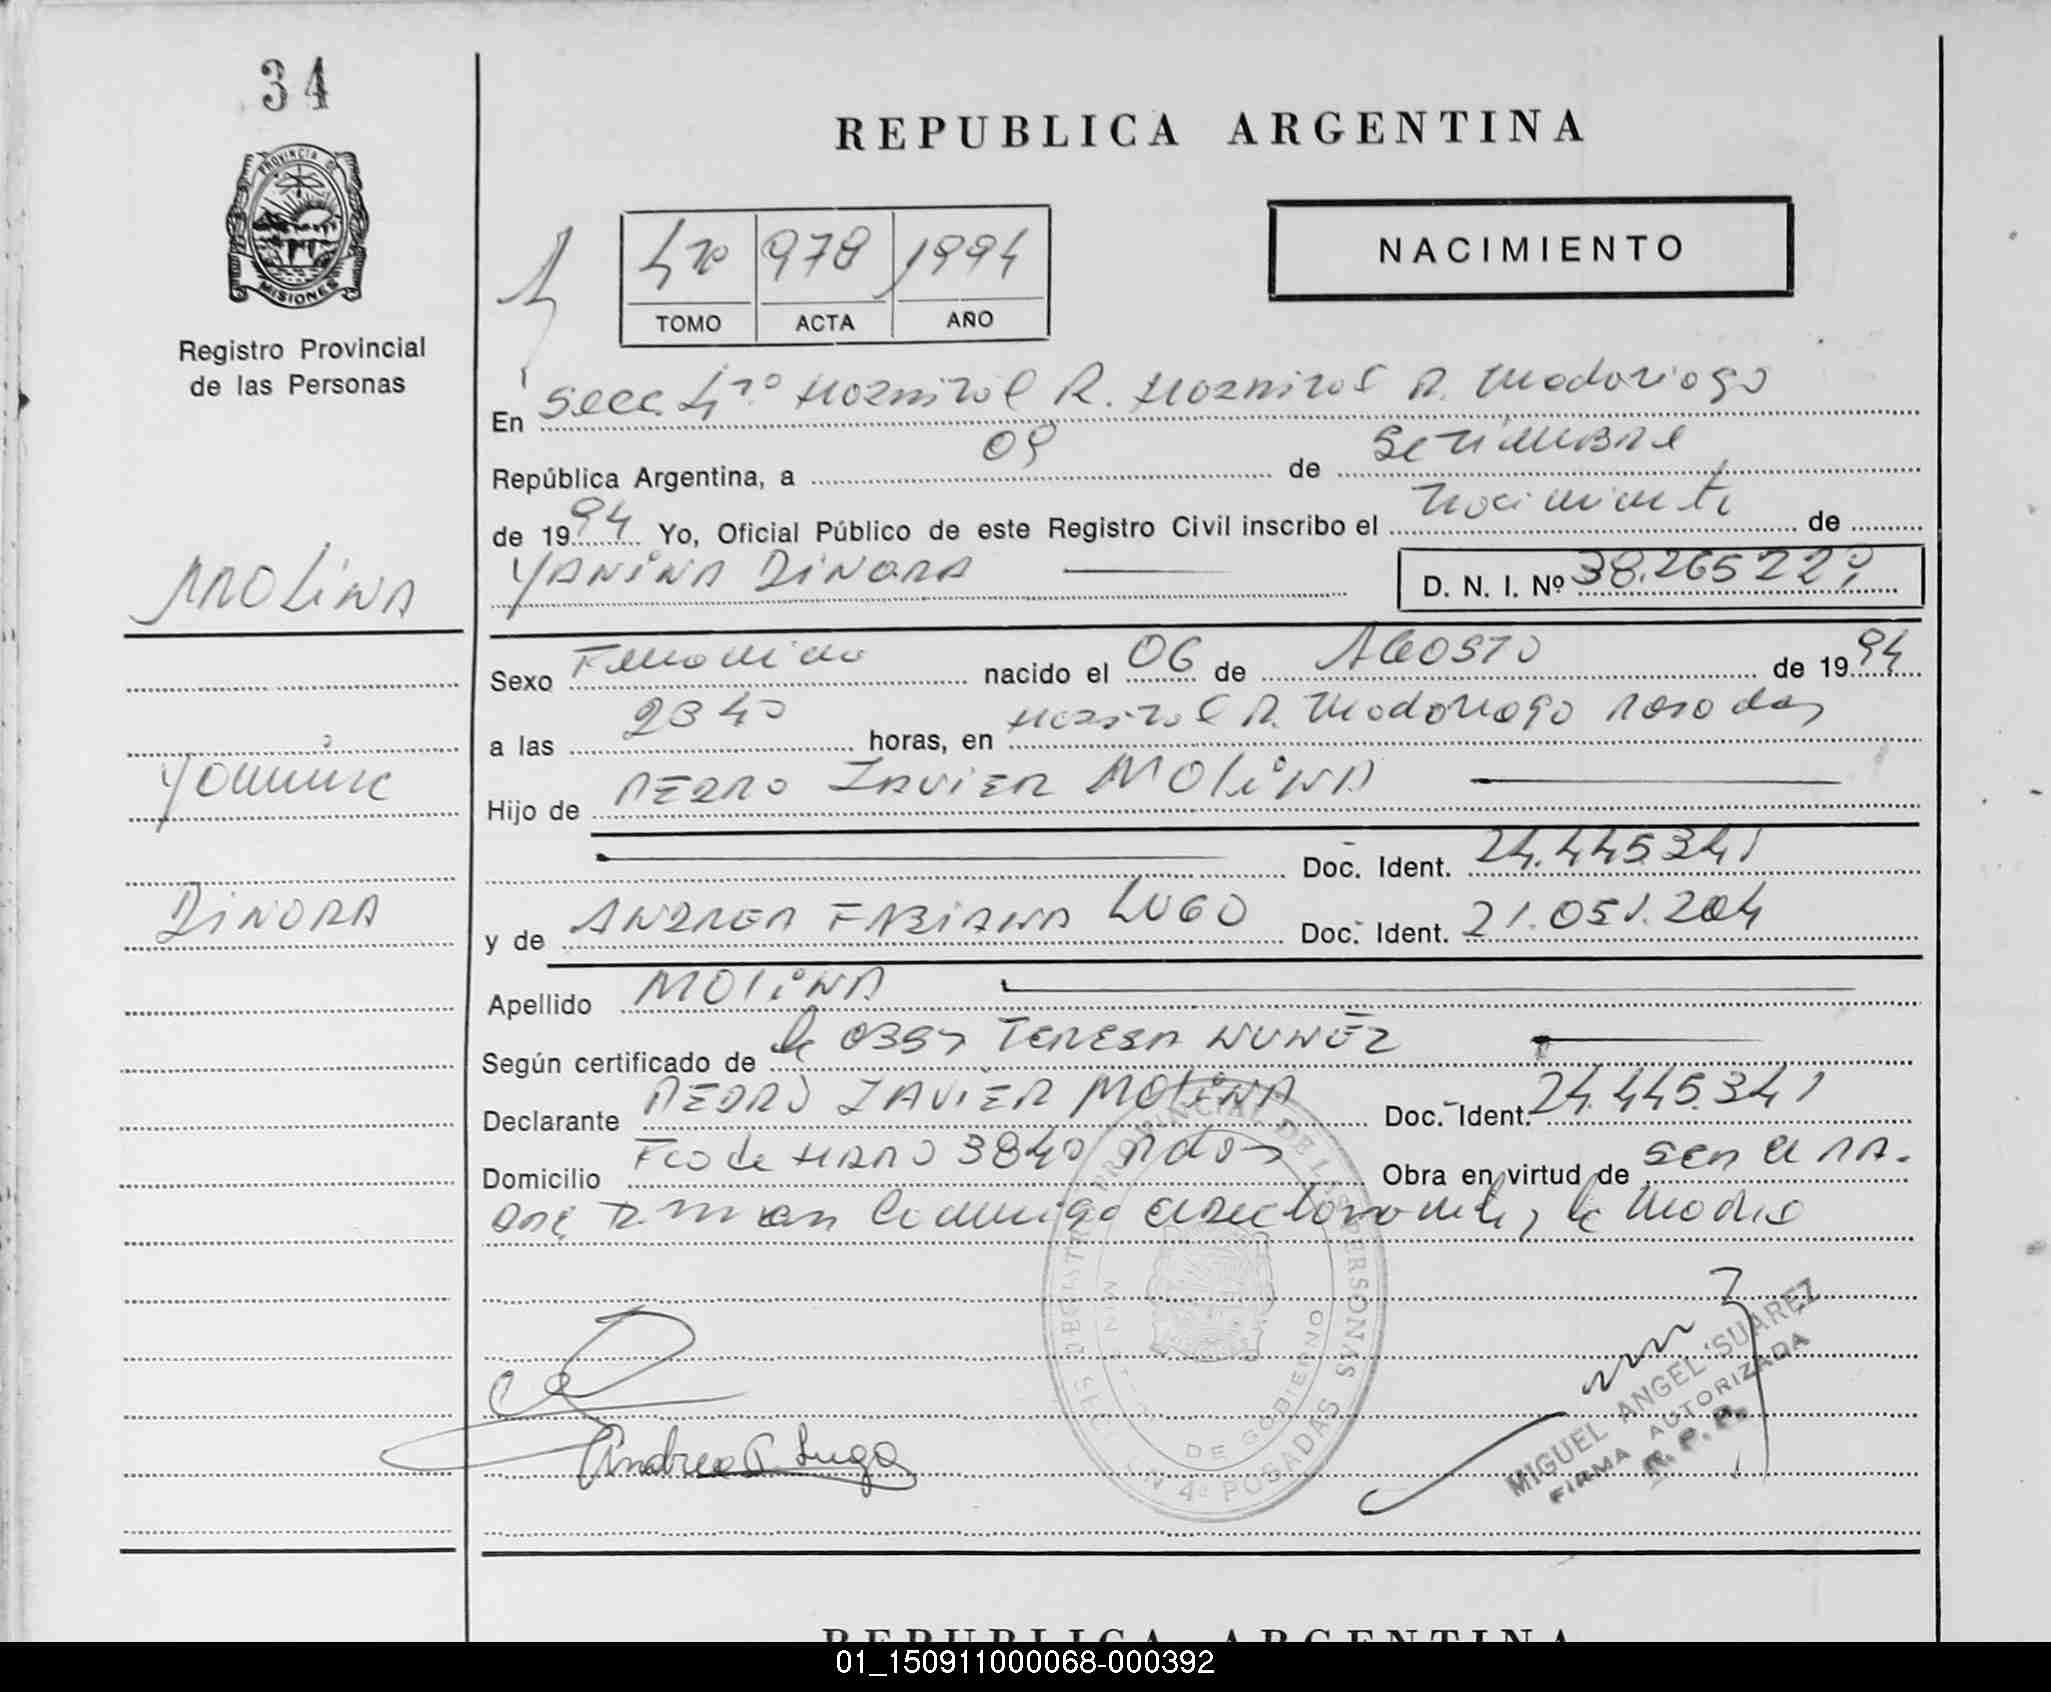 34
REPUBLICA ARGENTINA
PROVINCIA DE
MISIONES
Registro Provincial
de las Personas
4to 978 1994
TOMO ACTA AÑO
NACIMIENTO
En Secc. 4to Hospital R. Madariaga
República Argentina, a 09 de Setiembre
de 1994 Yo, Oficial Público de este Registro Civil inscribo el Nacimiento de
YANINA DINORA D. N. I. Nº 38.265.22
MOLINA
Sexo Femenino nacido el 06 de AGOSTO de 1994
a las 2340 horas, en Hospital R. Madariaga Posadas
Yanina
Hijo de PEDRO JAVIER MOLINA
Doc. Ident. 24.445.341
DINORA
y de ANDREA FABIANA LUGO Doc. Ident. 21.051.204
Apellido MOLINA
Según certificado de la OBST TERESA NUÑEZ
Declarante PEDRO JAVIER MOLINA Doc. Ident. 24.445.341
Domicilio Fco de HARO 3840 Pdas Obra en virtud de ser el PA.
DRE Firman Conmigo el declarante y la Madre
REGISTRO PROVINCIAL DE LAS PERSONAS
DE GOBIERNO
SECCION 4ª POSADAS
Andrea F. Lugo
MIGUEL ANGEL SUAREZ
FIRMA AUTORIZADA
R. P. P.
REPUBLICA ARGENTINA
01_150911000068-000392